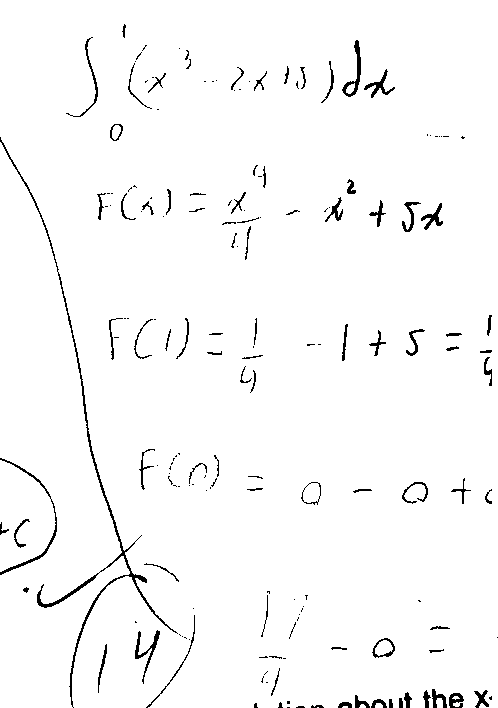 ∫₀¹ (x³ - 2x + 5) dx
F(x) = x⁴/4 - x² + 5x
F(1) = 1/4 - 1 + 5 =
F(0) = 0 - 0 +
+C
14
17/4 - 0 =
about the x-